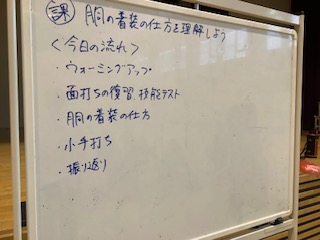 課 胴の着装の仕方を理解しよう
<今日の流れ>
・ウォーミングアップ
・面打ちの復習、技能テスト
・胴の着装の仕方
・小手打ち
・振り返り